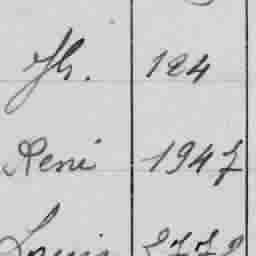 Jh. 124
René 1947
Louis